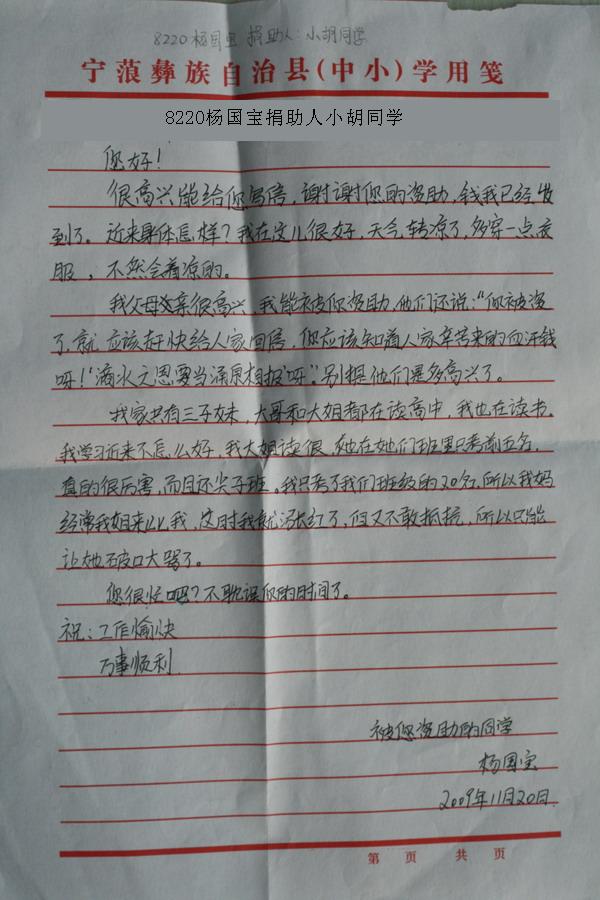 8220杨国宝 捐助人:小胡同学
宁蒗彝族自治县(中小)学用笺
8220杨国宝捐助人小胡同学
您好!
很高兴能给您写信,谢谢您的资助,钱我已经收
到了。近来身体怎样?我在这儿很好,天气转凉了,多穿一点衣
服,不然会着凉的。
我父母亲很高兴,我能被你资助,他们还说:“你被资
了,就应该赶快给人家回信,你应该知道人家辛苦来的血汗钱
呀!“滴水之恩要当涌泉相报”呀”。别提他们是多高兴了。
我家共有三子妹,大哥和大姐都在读高中,我也在读书。
我学习近来不怎么好,我大姐读很,她在她们班里只考前五名,
真的很厉害,而且还尖子班。我只考了我们班级的20名,所以我妈
经常我姐来比我,这时我就涨红了,但又不敢抵抗,所以只能
让她破口大骂了。
您很忙吧?不耽误你的时间了。
祝:工作愉快
万事顺利
被您资助的同学
杨国宝
2009年11月20日
第 页 共 页